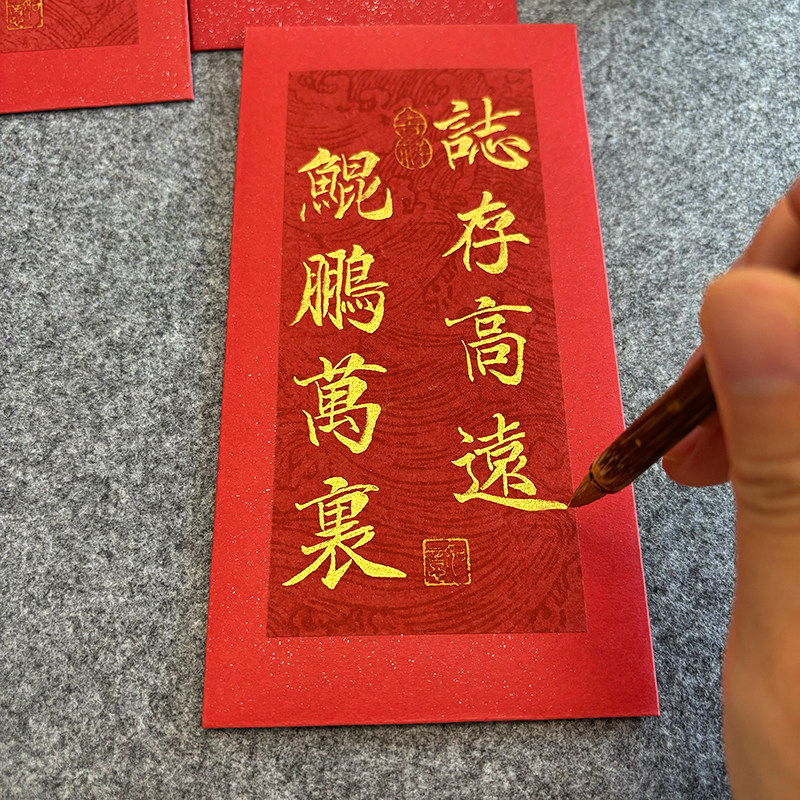 誌存高遠
鯤鵬萬裏
吉祥